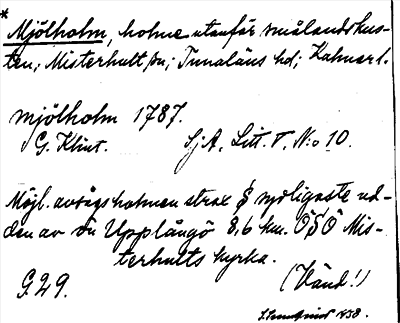 * Mjölholm, holme utanför smålandskus-
ten; Misterhult sn; Tunaläns hd; Kalmar l.
mjölholm 1787.
G. Klint. SjA, Litt. T, N:o 10.
Möjl. avsågs holmen strax S sydligaste ud-
den av ön Upplångö 8,6 km. ÖSÖ Mis-
terhults kyrka.
G.29. (Vänd!)
1938.